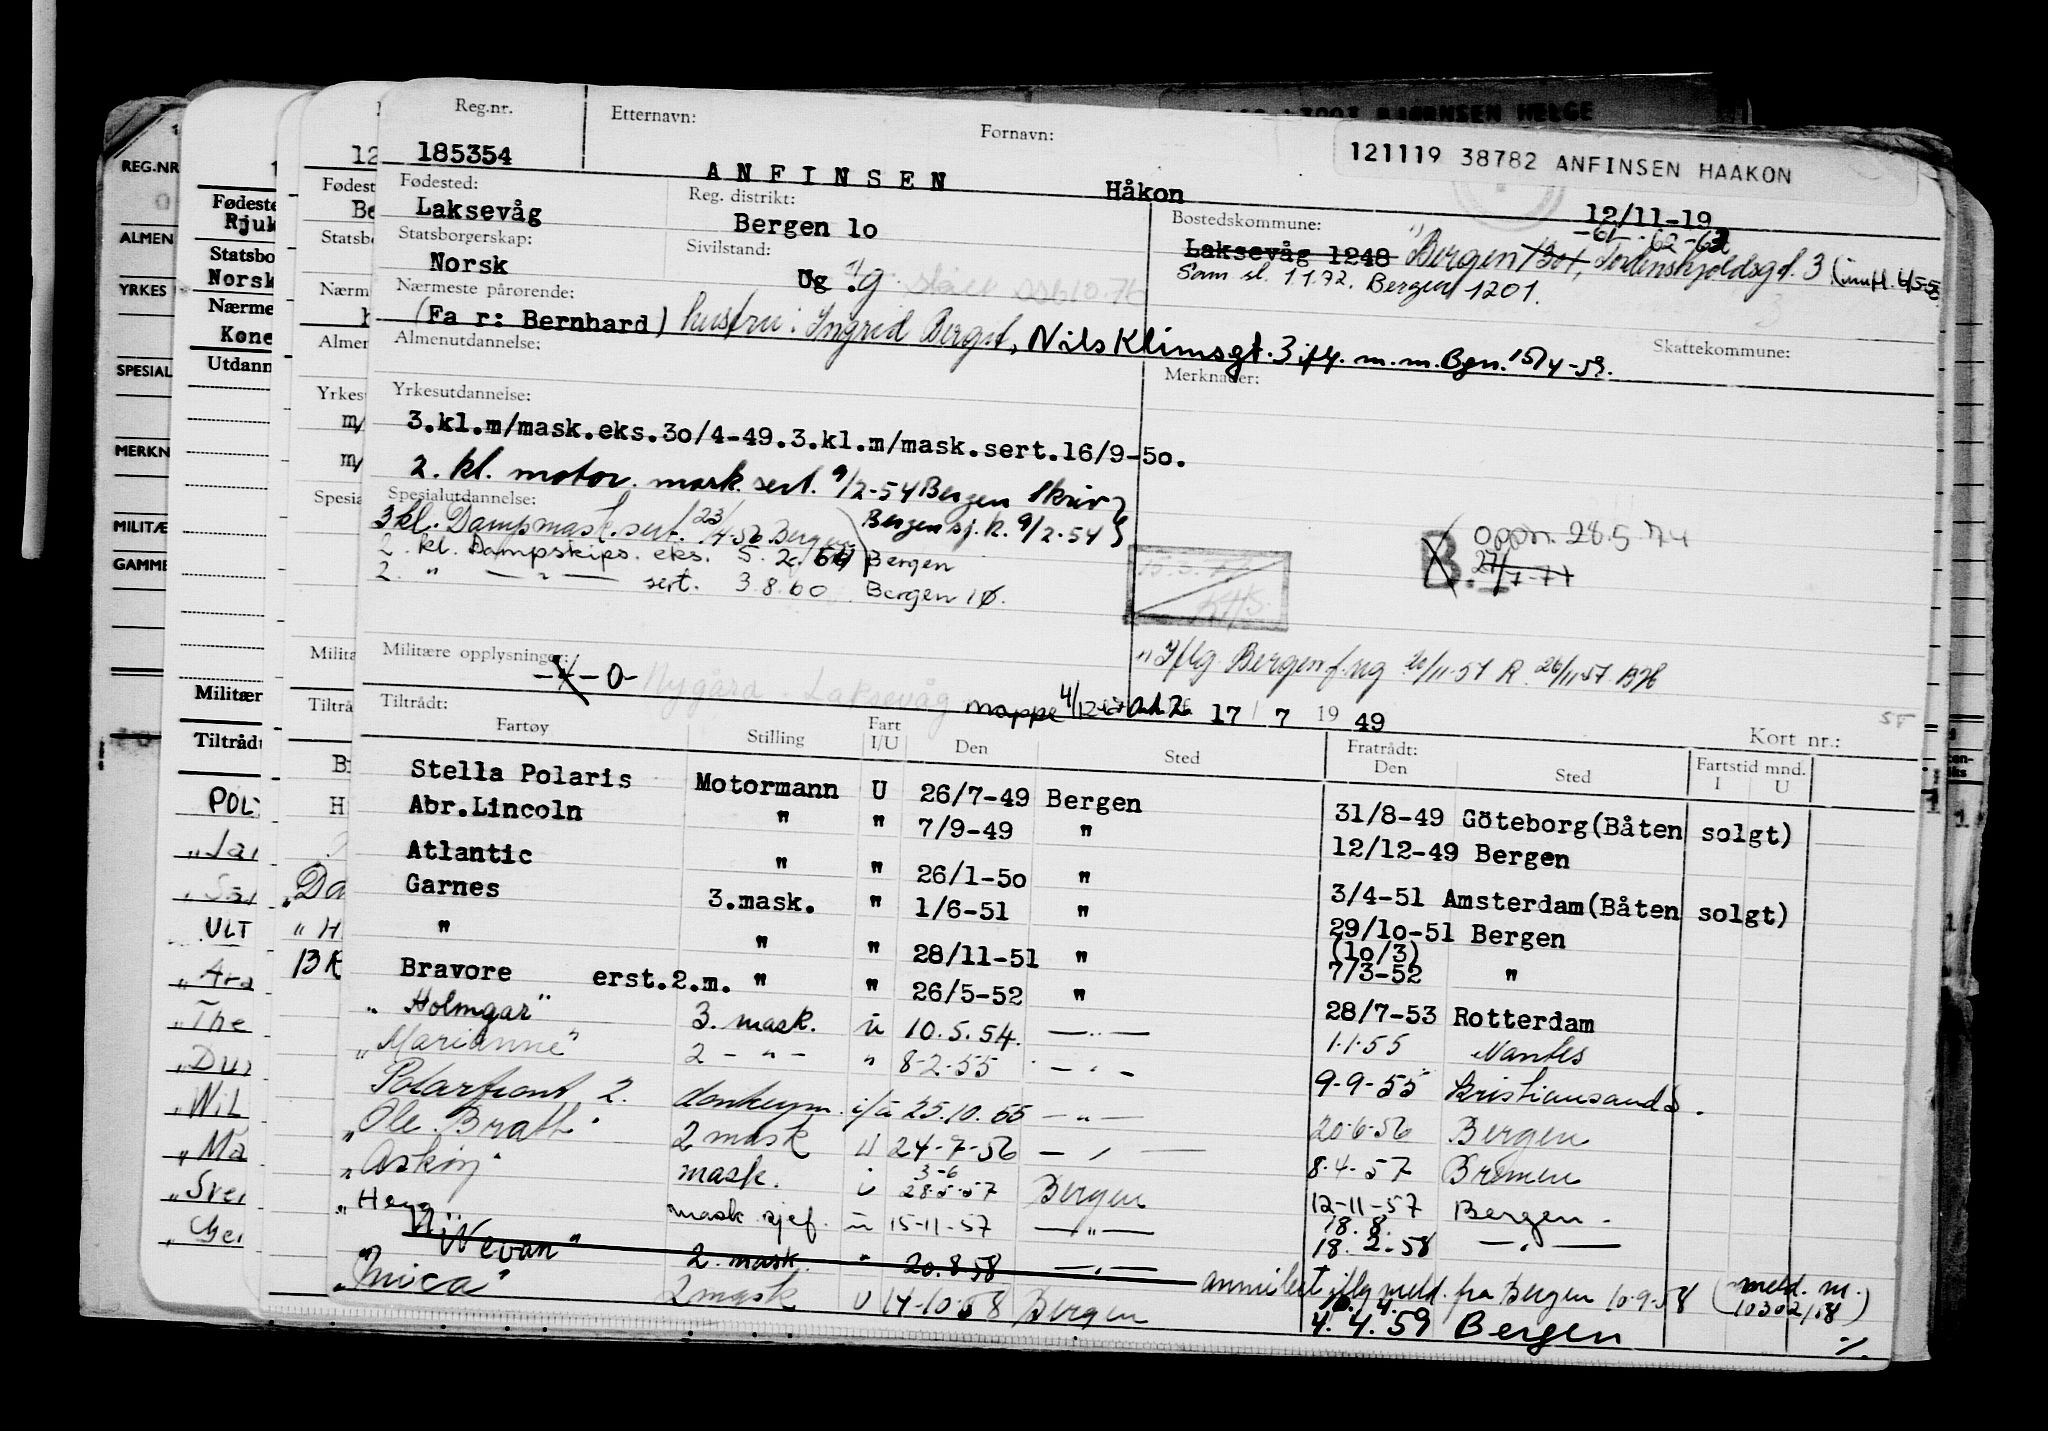 BJØRNSEN HELGE
121119 38782 ANFINSEN HAAKON
Reg.nr. Etternavn: Fornavn:
185354 ANFINSEN Håkon 12/11-19
Fødested: Reg. distrikt: Bostedskommune:
Laksevåg Bergen lo Laksevåg 1248 Bergen 1301, Tordenskjoldsgt. 3
Statsborgerskap: Sivilstand: Sam. sl. 1.1.72. Bergen 1201.
Norsk Ug g.
Nærmeste pårørende: Skattekommune:
(Fa r: Bernhard) hustru: Ingrid Bergit, Nils Klimsgt. 3 ifl. m.m. Bgn. 15/4-59.
Almenutdannelse: Merknader:
Yrkesutdannelse:
3.kl.m/mask.eks.3o/4-49.3.kl.m/mask.sert.16/9-5o.
2. kl. motor. mask. sert. 9/2-54 Bergen
Spesialutdannelse: Bergen sj. k. 9/2-54
3 kl. Dampmask. sert. 23/4-56 Bergen
2. kl. Dampskips. eks. 5. 2. 54 Bergen
2. " — " — sert. 3.8.60. Bergen 10.
B. oppn. 28.5.74
27/7-77
Militære opplysninger: -0- Nygård - Laksevåg
Iflg. Bergen f. reg 26/11-57
Tiltrådt: mappe 4/12-67 17/7 1949 Kort nr.:
Fartøy Stilling Fart I/U Den Sted Fratrådt: Den Sted Fartstid mnd. I U
Stella Polaris Motormann U 26/7-49 Bergen 31/8-49 Göteborg(Båten solgt)
Abr.Lincoln " " 7/9-49 " 12/12-49 Bergen
Atlantic " " 26/1-5o " 3/4-51 Amsterdam(Båten solgt)
Garnes 3.mask. " 1/6-51 " 29/1o-51 Bergen
" " " 28/11-51 " (1o/3) 7/3-52 "
Bravore erst.2.m. " " 26/5-52 " 28/7-53 Rotterdam
"Holmgar" 3. mask. u 10.5.54. — " — 1.1.55 Nantes
"Marianne" 2 - " - " 8-2-55 — " — 9-9-55 Kristiansand S.
Polarfront 2. donkeym. i/u 25.10.55 — " — 20-6-56 Bergen
"Ole Bratt" 2 mask U 24-7-56 — " — 8-4-57 Bremen
"Askøy" mask. u 3-6 28-5-57 Bergen 12-11-57 Bergen
"Hegg" mask. sjef. u 15-11-57 — " — 18. 8. 18. 2.-58 — " —
"Nevan" 2. mask. " 20.8.58 — " — annulert iflg meld. fra Bergen 10-9-58 (meld. m. 10302/58)
"Mica" 2 mask U 14-10-58 Bergen 4. 4. 59 Bergen
REG.NR
ALMEN
YRKES
SPESIAL
MERKN
MILITÆ
GAMME
Fødeste
Rjuk
Statsbo
Norsk
Nærme
Kone
Utdann
Militær
Tiltrådt
POL
ULT